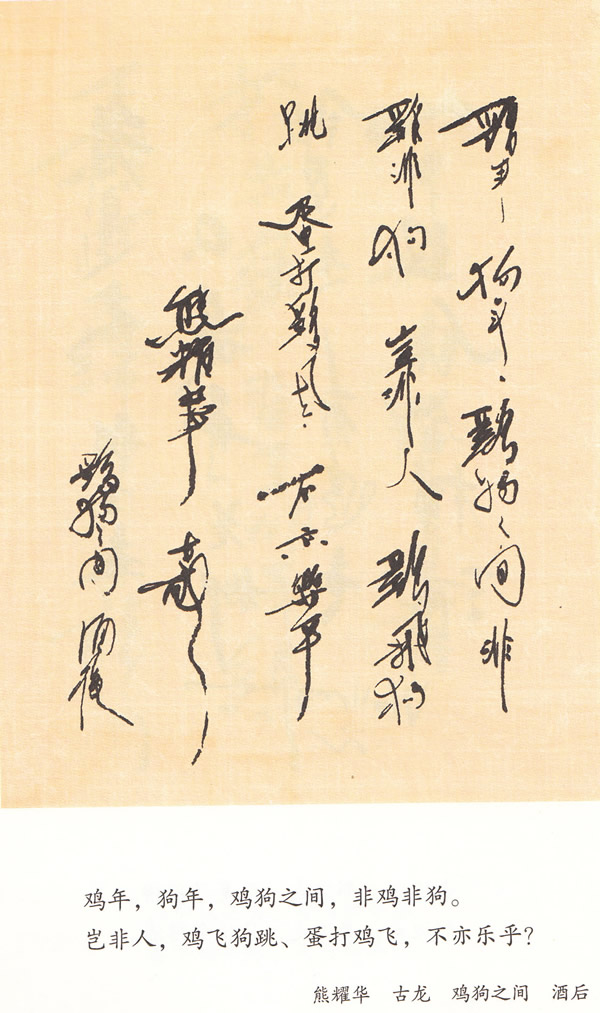 鷄年狗年鷄狗之間非
鷄非狗豈非人鷄飛狗
跳蛋打鷄飛不亦樂乎
熊耀華古龍
鷄狗之間酒後
鸡年，狗年，鸡狗之间，非鸡非狗。
岂非人，鸡飞狗跳、蛋打鸡飞，不亦乐乎？
熊耀华 古龙 鸡狗之间 酒后